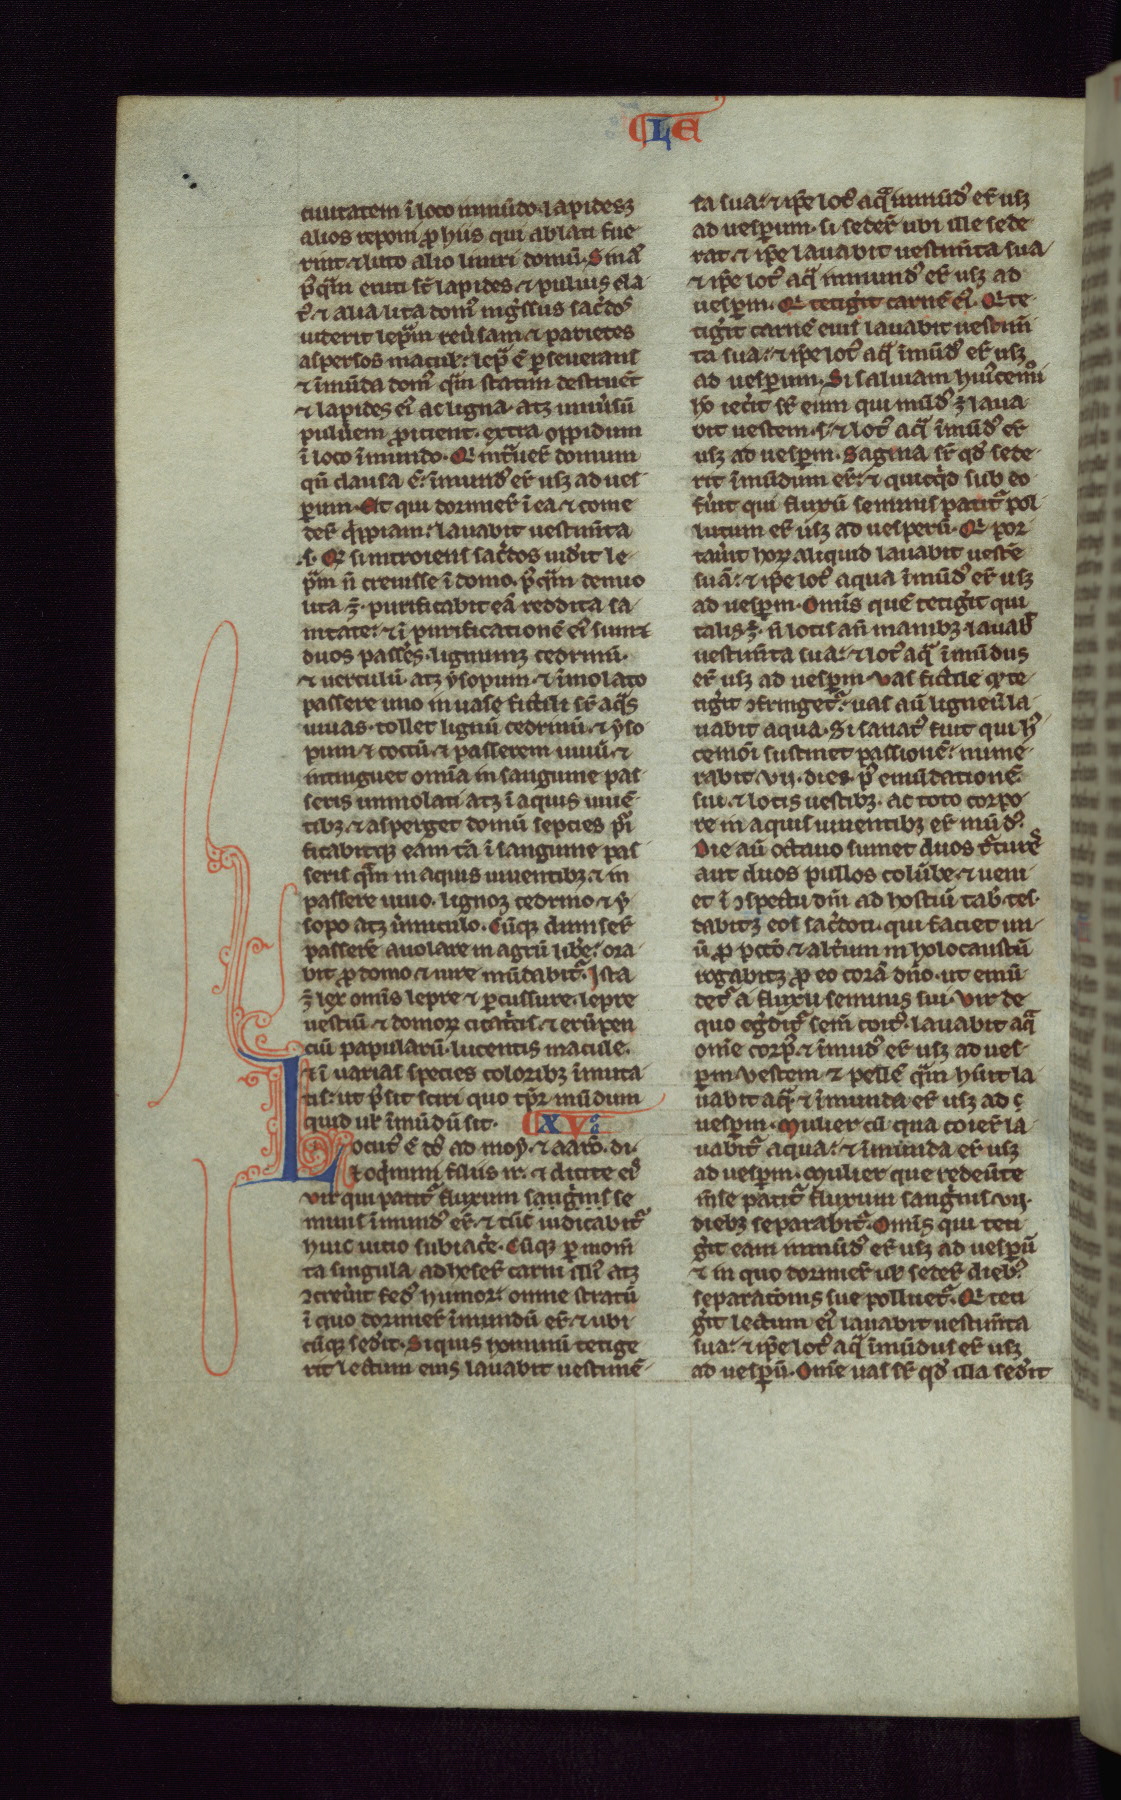 LE
ciuitatem ī loco īmūdo lapidesqꝫ
alios reponi ꝓ hiis qui ablati fue
rint ⁊ luto alio liniri domū. Sin aūt
p̄q̄m eruti st̄ lapides ⁊ puluis ela
t᷒ ⁊ alia lita dom᷒ ingr̄ssus sac̄dos
uiderit lepram reūsam ⁊ parietes
aspersos macul᷒ lepra ē ꝑseuerans
⁊ īmūda dom᷒ quam statim destruēt
⁊ lapides ei᷒ ac ligna atqꝫ uniūsū
puluerem ꝓicient extra oppidum
ī loco īmundo. Qi intūer̄ domum
qn̄ clausa ē īmund᷒ er̄ usqꝫ ad ues
ꝑum. Et qui dormier̄ ī ea ⁊ come
der̄ q̄ppiam lauabit uestim̄ta
s. Qi si introiens sac̄dos uid̄it le
pram n̄ creuisse ī domo p̄q̄m denuo
lita ē purificabit eā reddita sa
nitate ⁊ ī purificationē ei᷒ sumet
duos passēs lignumqꝫ cedrinū
⁊ uerculū atqꝫ ysopum ⁊ īmolato
passere uno in uase fictili sr̄ aq̄s
uiuas tollet lignū cedrinū ⁊ yso
pum ⁊ coccū ⁊ passerem uiuū ⁊
intinguet omīa in sanguine pas
seris immolati atqꝫ ī aquis uiuē
tibꝫ ⁊ asperget domū septies pu
ficabitqꝫ eam tā ī sanguine pas
seris q̄m in aquis uiuentibꝫ ⁊ in
passere uiuo lignoqꝫ cedrino ⁊ y
sopo atqꝫ uīniculo. Cūqꝫ dimiser̄
passerē auolare in agrū libe ora
bit ꝓ domo ⁊ iure mūdabit᷒. Ista
ē lex omīs lepre ⁊ ꝑcussure lepre
uestiū ⁊ domoꝝ cicat̄cis ⁊ erūpen
ciū papularū lucentis macule
⁊ ī uarias species coloribꝫ īmuta
tis ut p̄sit sciri quo tp̄r mūdum
quid ul̄ īmūdū sit. XVa
Locut᷒ ē dn̄s ad moy. ⁊ aarō. di.
Loq̄mini filiis ir. ⁊ dicite eis
Vir qui patit᷒ fluxum sanguīs se
minis īmund᷒ er̄ ⁊ tūc iudicabit᷒
huic uitio subiacē. Cūqꝫ ꝑ mom̄
ta singula adheser̄ carni illi᷒ atqꝫ
ꝯcreūit fed᷒ humor omne stratū
ī quo dormier̄ īmundū er̄ ⁊ ubi
cūqꝫ sed̄it. Si quis hominū tetige
rit lectum eius lauabit uestimē
ta sua ⁊ ip̄e lot᷒ aqua īmūd᷒ er̄ usqꝫ
ad uesꝑum. si seder̄ ubi ille sede
rat ⁊ ip̄e lauabit uestim̄ta sua
⁊ ip̄e lot᷒ aqua immund᷒ er̄ usqꝫ ad
uesꝑm. Qi tetiḡit carnē ei᷒. Qi te
tiḡit carnē eius lauabit uestim̄
ta sua ⁊ ip̄e lot᷒ aqua īmūd᷒ er̄ usqꝫ
ad uesꝑum. Si saliuam hui᷒cemōi
hō iec̄it sr̄ eum qui mūd᷒ ē laua
bit uestem s. ⁊ lot᷒ aqua īmūd᷒ er̄
usqꝫ ad uesꝑm. Sagma sr̄ qd̄ sede
rit īmūdum er̄ ⁊ quicq̄d sub eo
fūit qui fluxū seminis patit᷒ pol
lutum er̄ usqꝫ ad uesperū. Qi por
tau̅it hoꝝ aliquid lauabit uestē
suā ⁊ ip̄e lot᷒ aqua īmūd᷒ er̄ usqꝫ
ad uesꝑm. Omīs quē tetiḡit qui
talis ē n̄ lotis an̄ manibꝫ lauab̄
uestim̄ta sua ⁊ lot᷒ aqua īmūdus
er̄ usqꝫ ad uesꝑm. Vas fictile qd̄ te
tiḡit ꝯfringet᷒ uas aū ligneū la
uabit aqua. Si sanat᷒ fūit qui h᷒
cemōi sustinet passionē nume
rabit vij. dies p᷒ emūdationē
sui ⁊ lotis uestibꝫ ac toto corpo
re in aquis uiuentibꝫ er̄ mūd᷒.
Die aū octauo sumet duos t᷒tures
aut duos pullos colūbe ⁊ veni
et ī ꝯspectu dn̄i ad hostiū tab̄. tes.
dabitqꝫ eos sac̄doti. qui faciet un
ū ꝓ pcc̄o ⁊ alt̄um in holocaustū
rogabitqꝫ ꝓ eo corā dn̄o ut emū
det᷒ a fluxu seminis sui. Vir de
quo eḡdit᷒ sem̄ coit᷒ lauabit aqua
om̄e corp᷒ ⁊ īmūd᷒ er̄ usqꝫ ad ues
ꝑm. Vestem ⁊ pellē q̄m hūit la
uabit aqua ⁊ īmunda er̄ usqꝫ ad
uesꝑm. Mulier cū qua coier̄ la
uabit᷒ aqua ⁊ īmunda er̄ usqꝫ
ad uesꝑm. Mulier que redeūte
m̄se patit᷒ fluxum sanguīs vij.
diebꝫ separabit᷒. Omīs qui teti
ḡit eam immūd᷒ er̄ usqꝫ ad uesꝑū
⁊ in quo dormier̄ ul̄ seder̄ diebꝫ
separatōnis sue polluet᷒. Qi teti
ḡit lectum ei᷒ lauabit uestim̄ta
sua ⁊ ip̄e lot᷒ aqua īmūdus er̄ usqꝫ
ad uesꝑū. Om̄e uas sr̄ qd̄ illa sed̄it